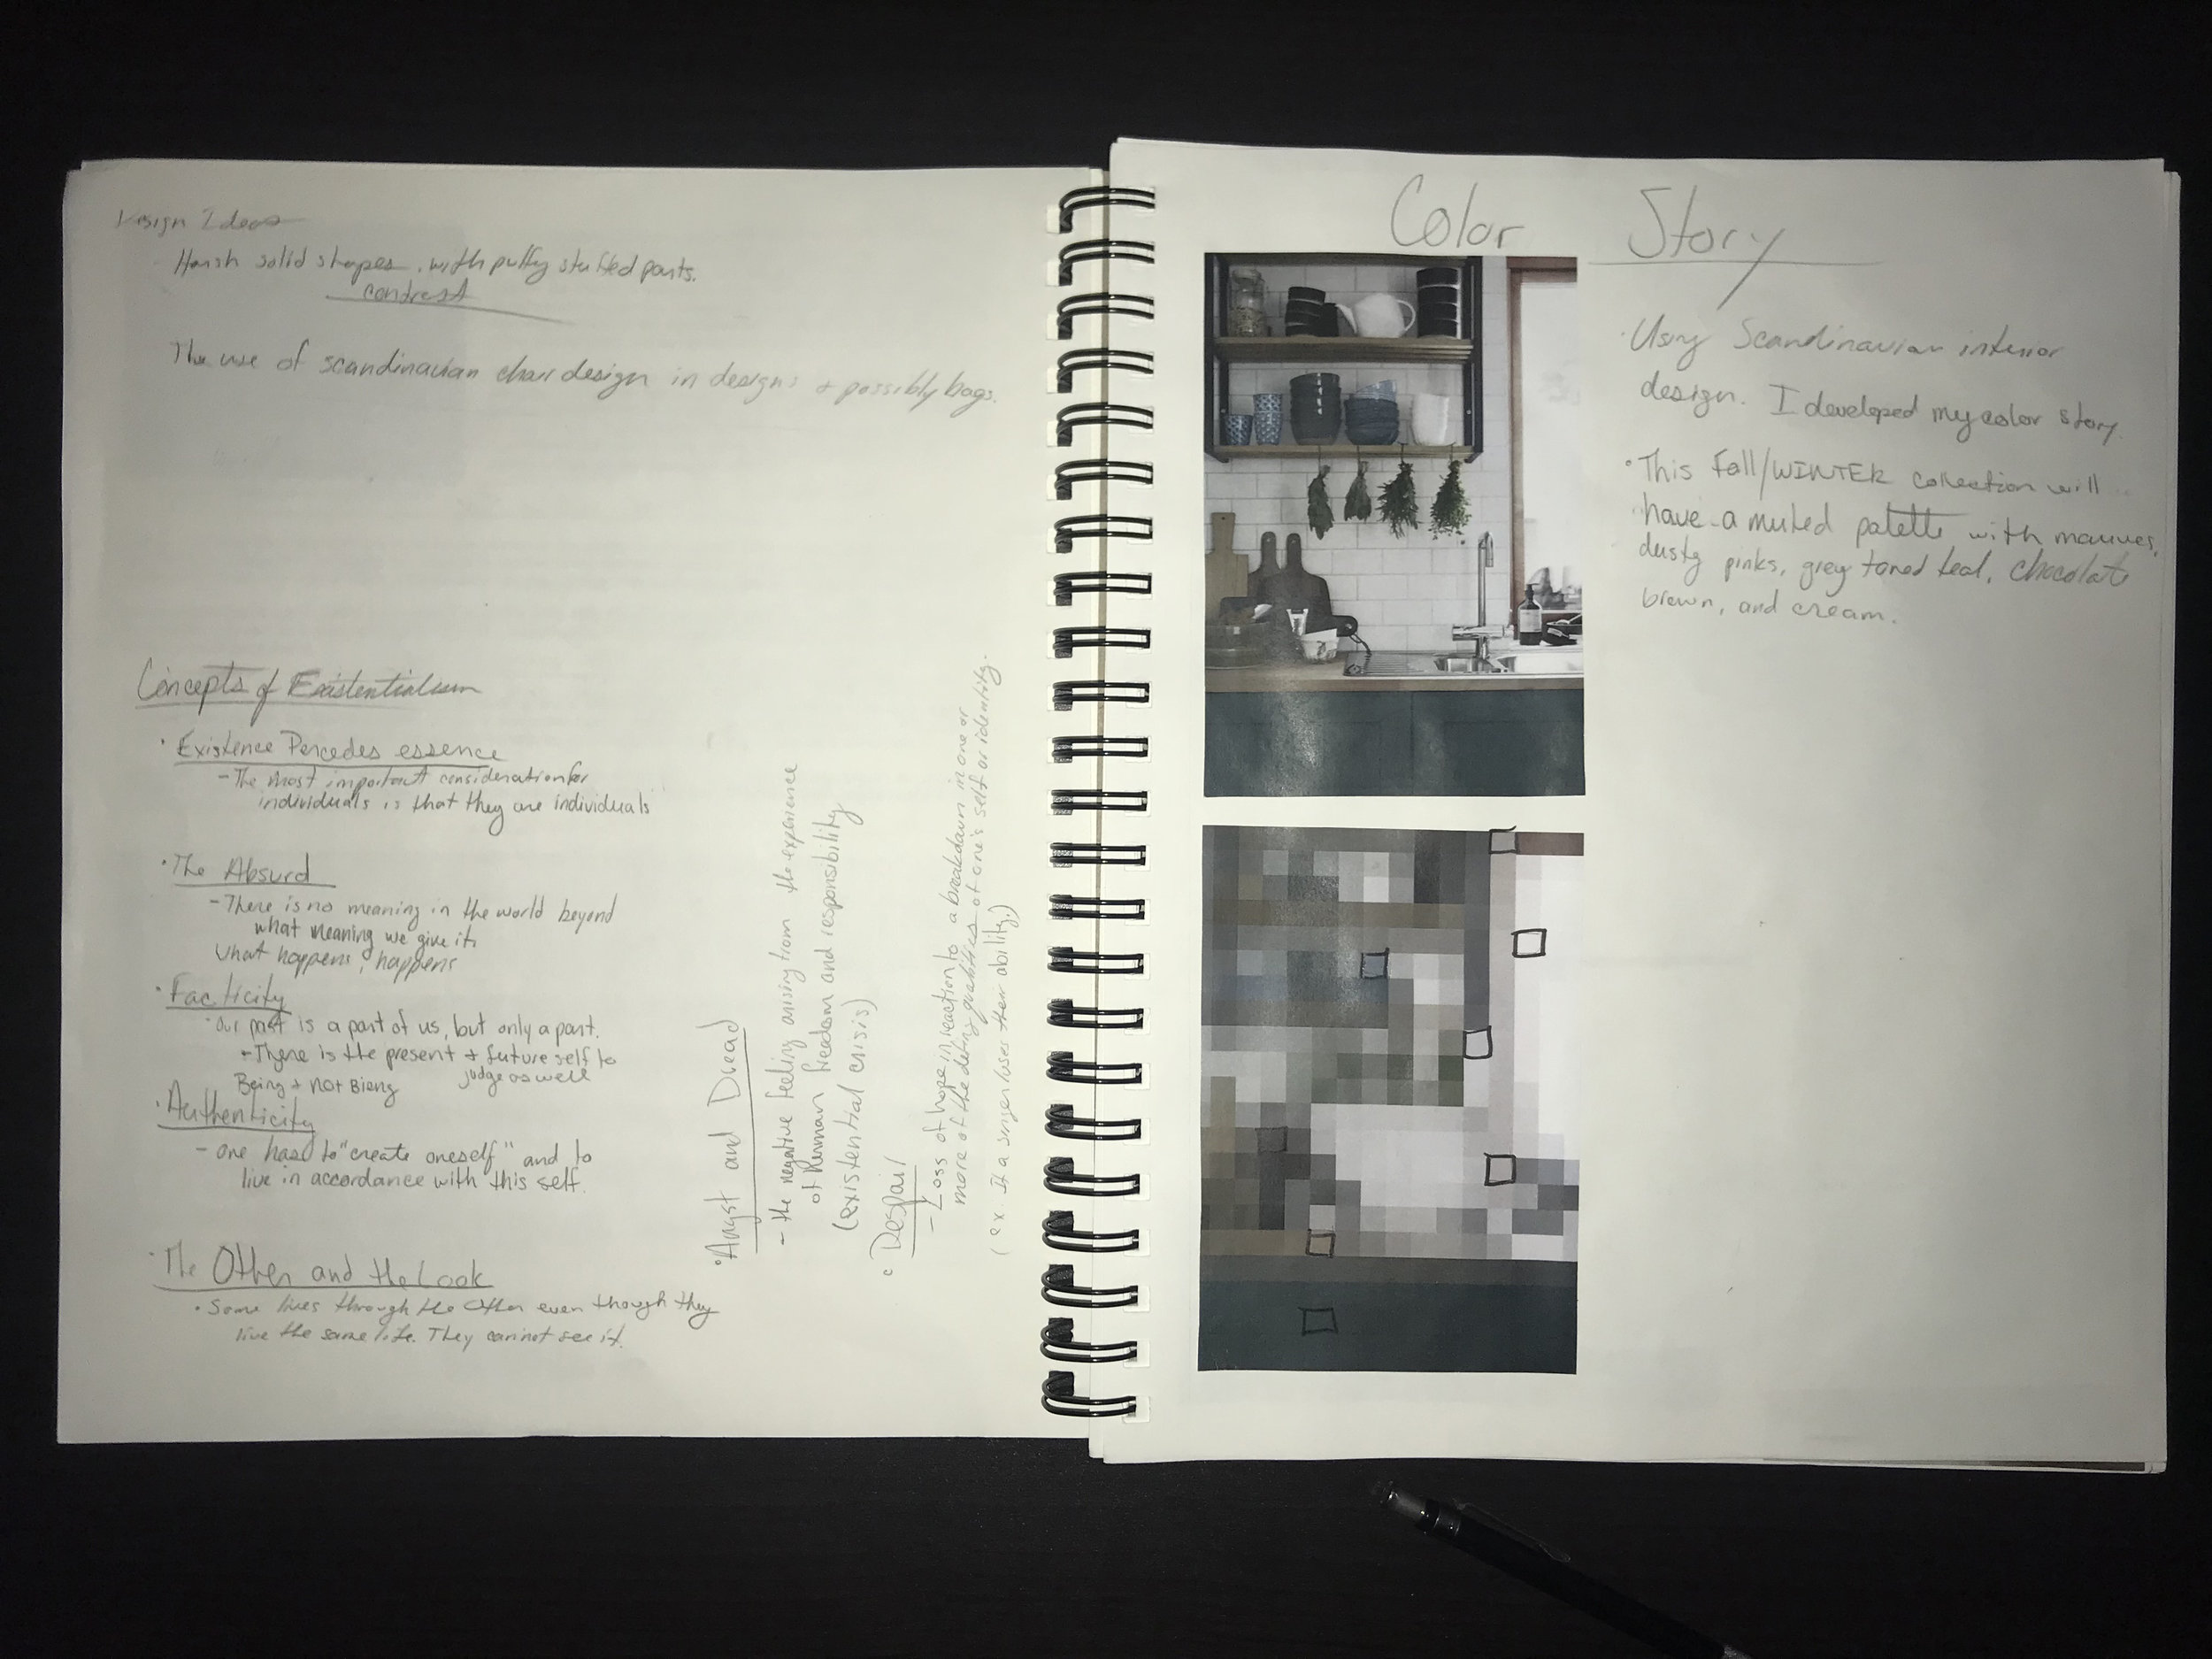 Design Ideas
Harsh solid shapes, with puffy stuffed parts.
contrast
The use of scandinavian chair design in designs + possibly bags.
Concepts of Existentialism
· Existence Percedes essence
- The most important consideration for
individuals is that they are individuals
· The Absurd
- There is no meaning in the world beyond
what meaning we give it.
what happens, happens
· Facticity
· our past is a part of us, but only a part.
- There is the present + future self to
judge as well
Being + Not Bieng
· Authenticity
- one has to "create oneself" and to
live in accordance with this self.
· The Other and the Look
· Some lives through the Other even though they
live the same life. They cannot see it.
· Angst and Dread
- the negative feeling arising from the experience
of human freedom and responsibility
(existential crisis)
· Despair
- Loss of hope in reaction to a breakdown in one or
more of the defing qualities of one's self or identity.
(ex. If a singer loses their ability.)
Color Story
· Using Scandinavian interior
design. I developed my color story.
· This Fall/WINTER collection will
have a muted palette with mauves,
dusty pinks, grey toned teal, chocolate
brown, and cream.